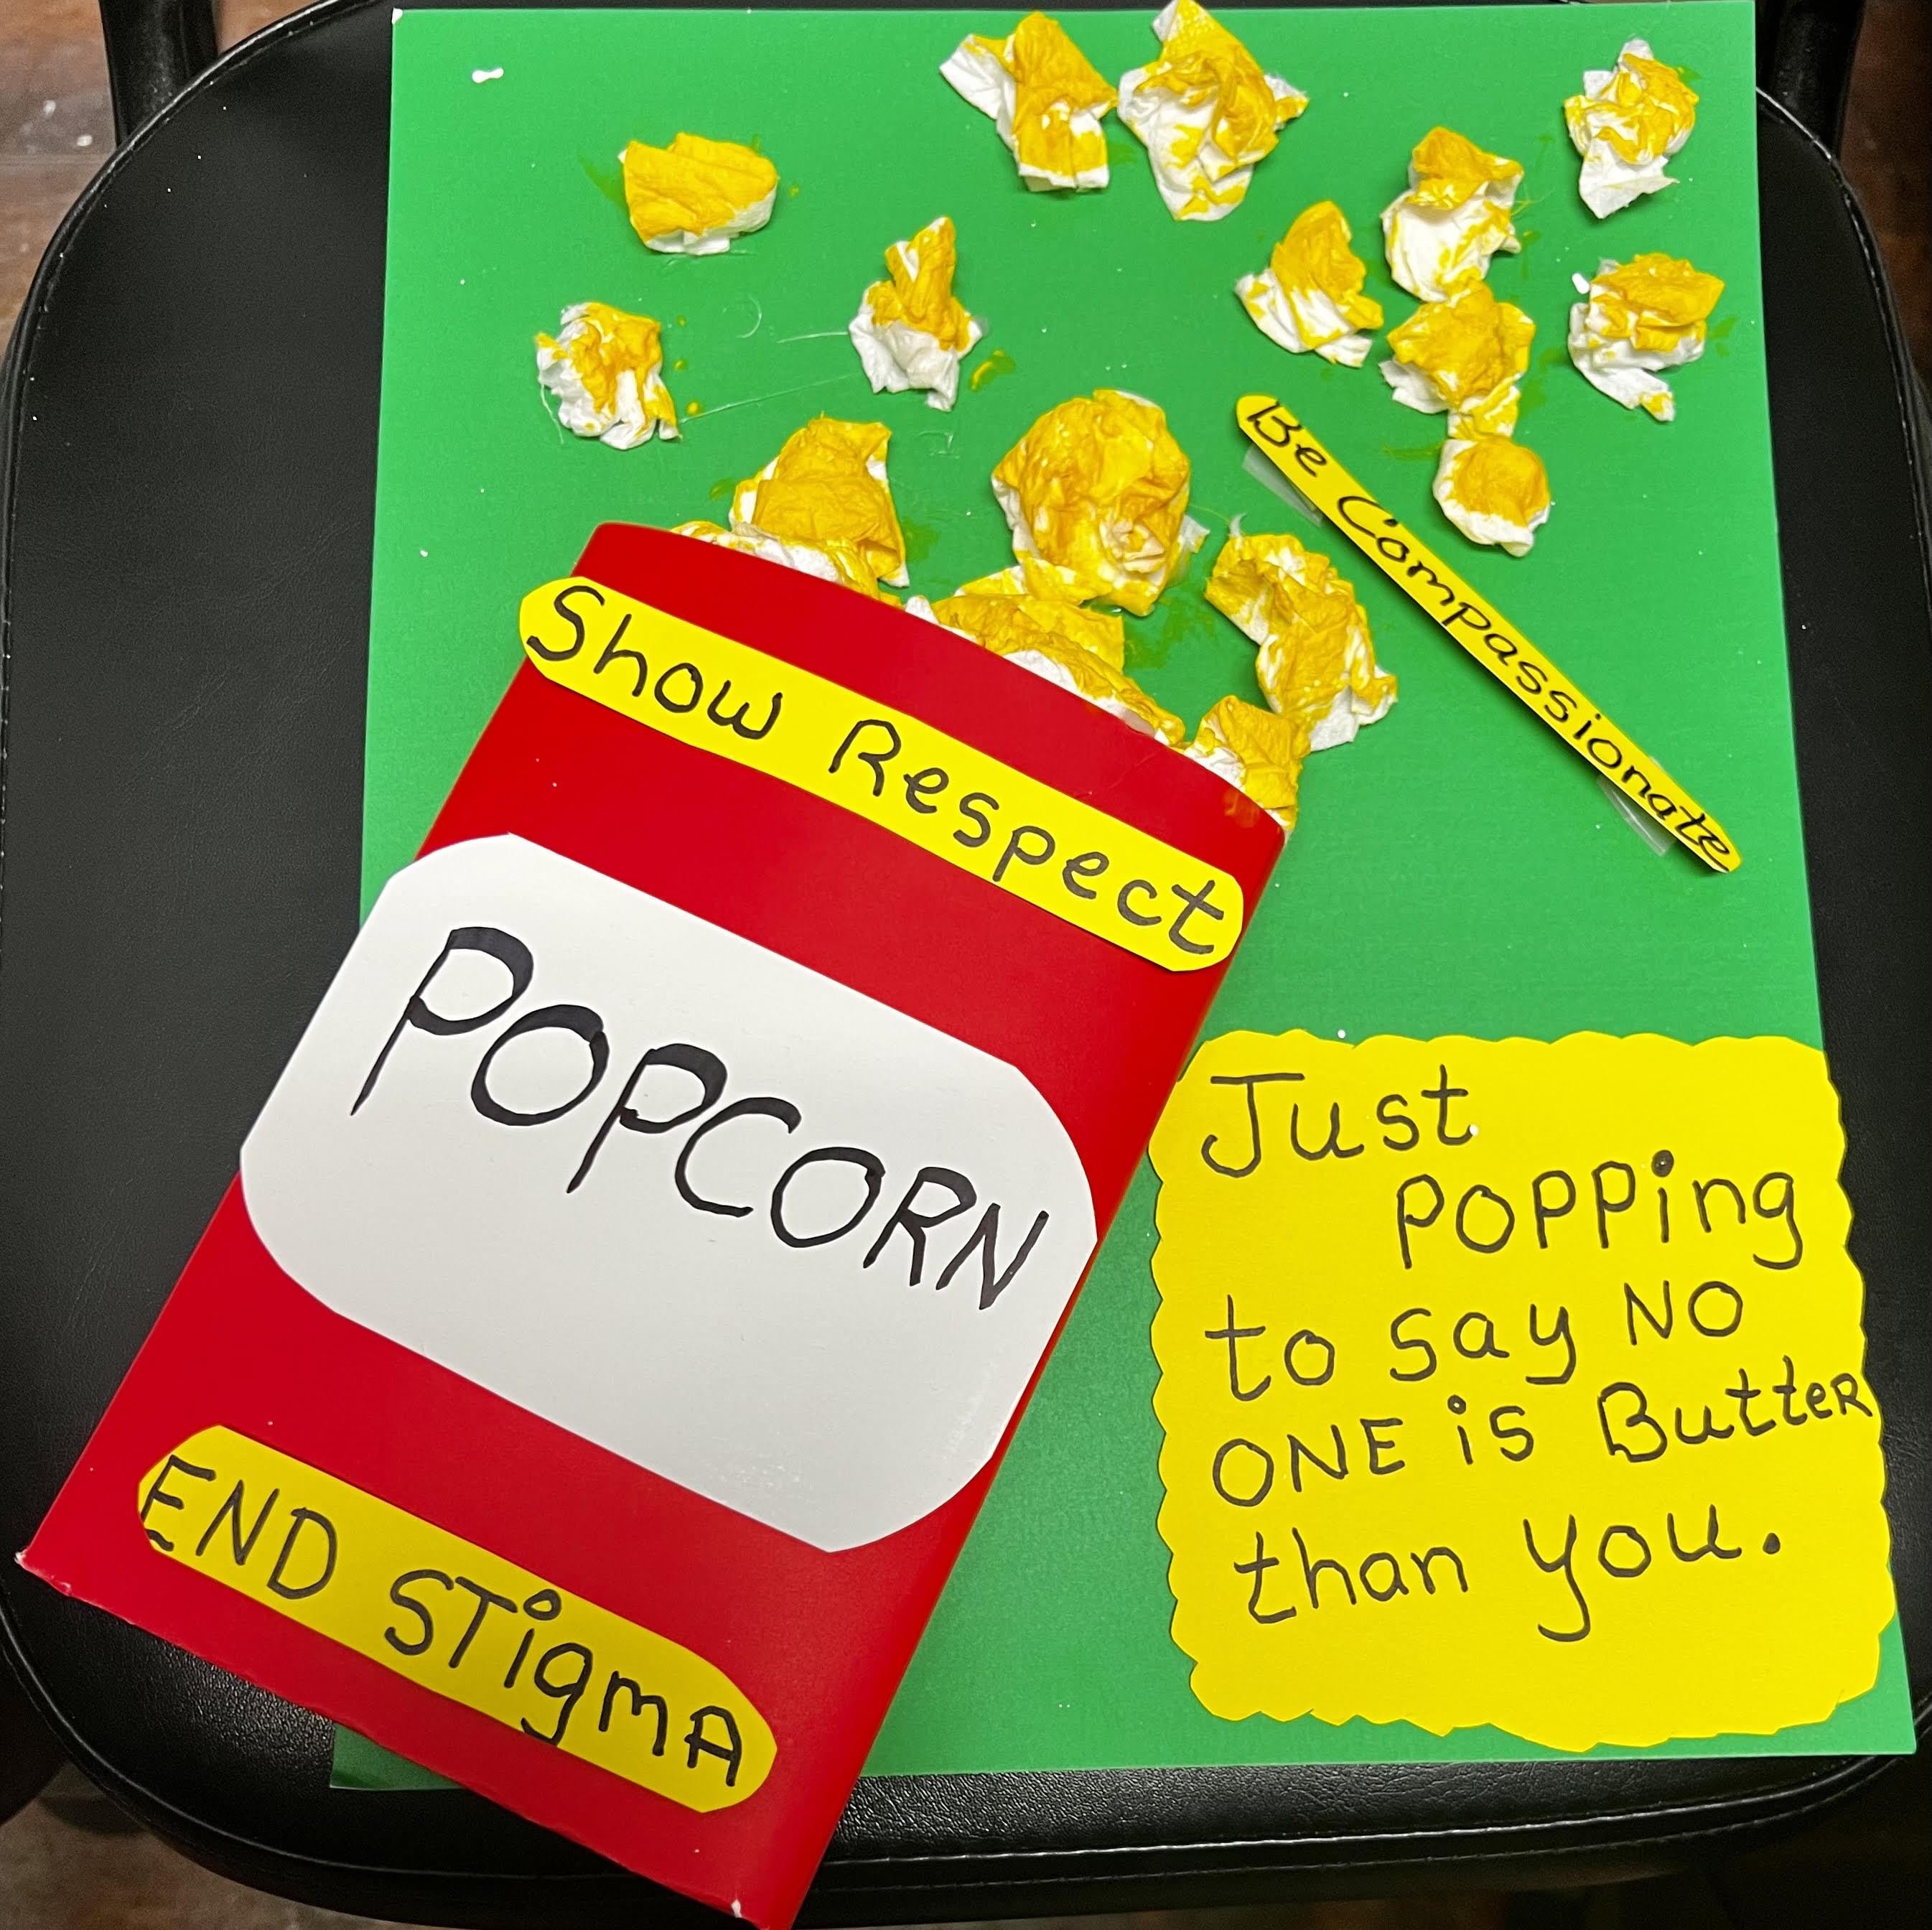 Be Compassionate
Show Respect
POPCORN
END STigmA
Just
POPPing
to say NO
ONE is ButteR
than you.